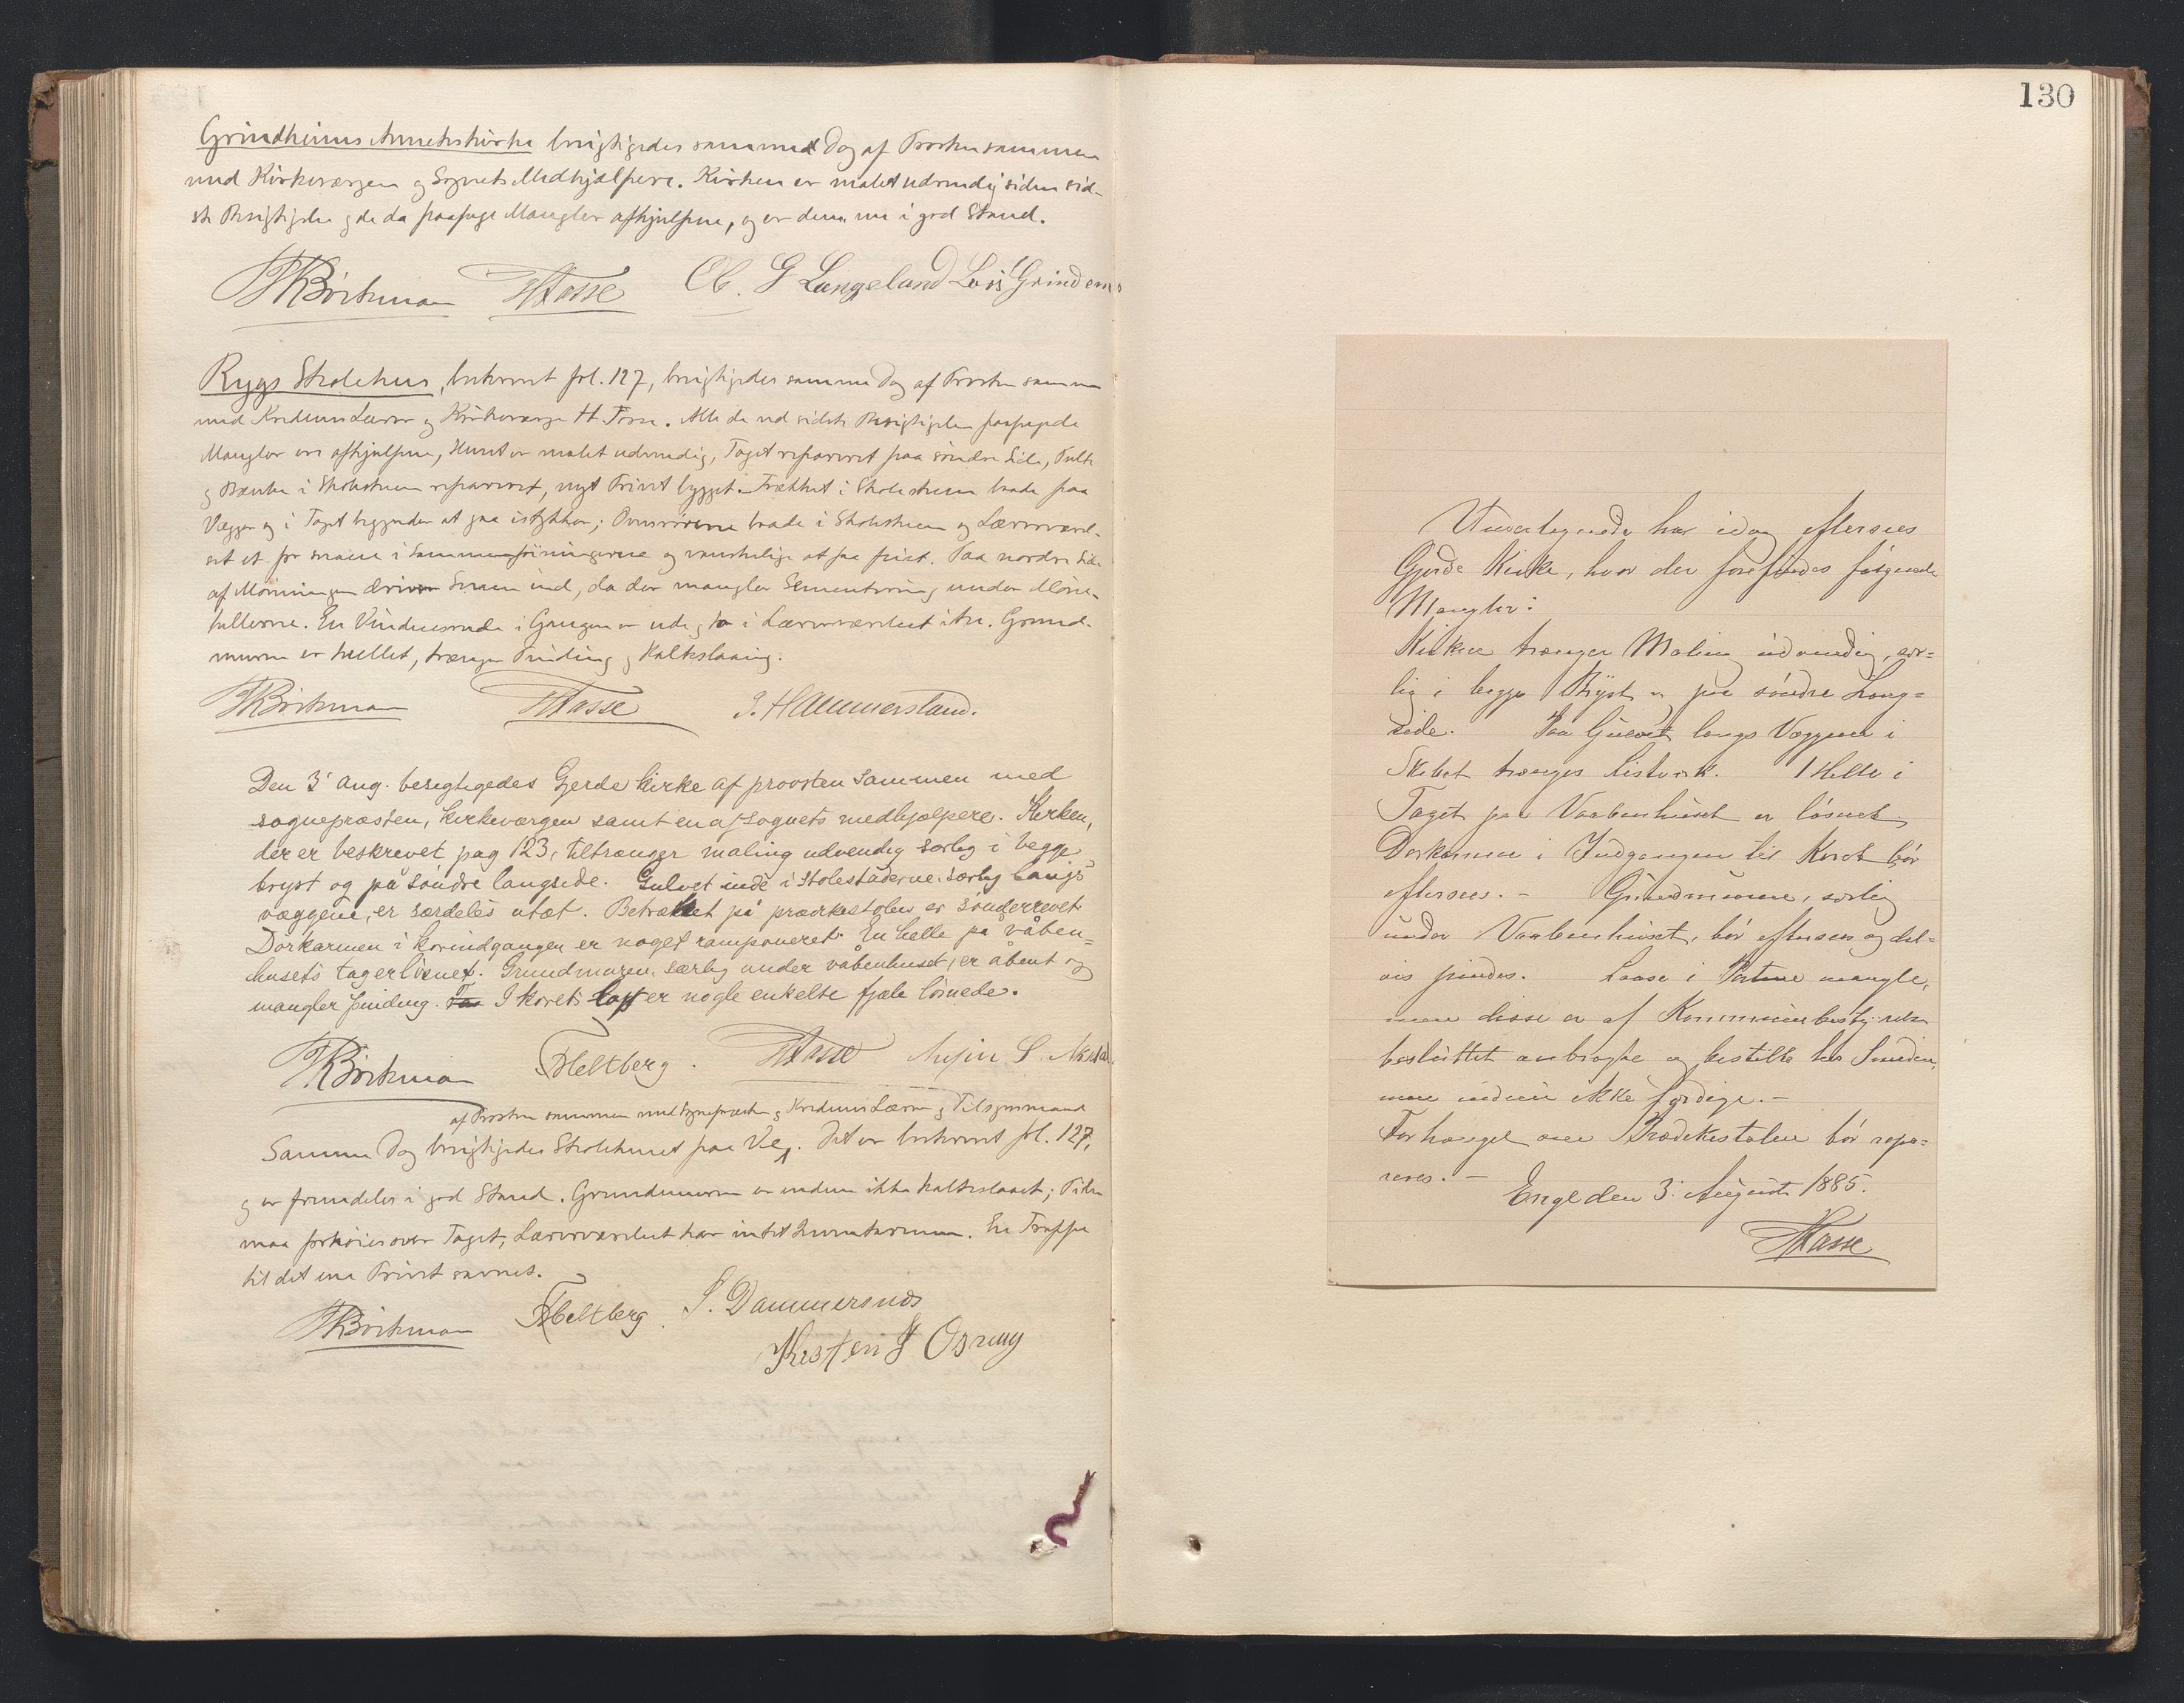 Grindheims Annekskirke besigtigedes samme Dag af Provsten sammen
med Kirkeværgen og Sognets Medhjælpere. Kirken er malet udvendig siden sid-
ste Besigtigelse og de da paapegte Mangler afhjulpne, og er den nu i god Stand.
JKBörkman HTasse Ol. G Langeland Lars Grindem
Rygs Skolehus, beskrevet fol. 127, besigtigedes samme Dag af Provsten sammen
med Kredsens Lærer og Kirkeværge H. Tasse. Alle de ved sidste Besigtigelse paapegede
Mangler ere afhjulpne, Huset er malet udvendig, Taget repareret paa søndre Side, Pulte
og Bænke i Skolestuen repareret, nyt Privet bygget. Trækket i Skolestuen baade paa
Vægge og i Taget begynder at gaa istykker; Ovnsrørene baade i Skolestuen og Lærerværel-
set er for snaue i Sammenføiningerne og vanskelige at faa fint. Paa nordre Side
af Mønningen driver Sneen ind, da der mangler Sementering under Møne-
hellerne. En Vinduesrude i Gangen er ude og to i Lærerværelset itu. Grund-
muren er hullet, trænger Pinding og Kalkslaaing.
JKBörkman HTasse J. Hammersland.
Den 3' Aug. besigtigedes Gjerde kirke af provsten sammen med
sognepræsten, kirkeværgen samt en af sognets medhjælpere. Kirken,
der er beskrevet pag 123, tiltrænger maling udvendig særlig i begge
bryst og på söndre langside. Gulvet inde i stolestaderne, særlig langs
væggene, er særdeles utæt. Betrækket på prækestolen er sönderrevet.
Dörkarmen i korindgangen er noget ramponeret. En helle på våben-
husets tag er lösnet. Grundmuren, særlig under våbenhuset, er åbent og
mangler pinding. I korets loft er nogle enkelte fjæle lösnede.
JKBörkman FHeltberg. HTasse S.
af Provsten sammen med Sognepræsten og Kredsens Lærer og Tilsynsmand
Samme Dag besigtigedes Skolehuset paa Ve. Det er beskrevet fol. 127,
og er fremdeles i god Stand. Grundmuren er endnu ikke kalkslaaet; Piben
maa forhøies over Taget; Lærerværelset har intet Inventarium. En Trappe
til det ene Privet savnes.
JKBörkman FHeltberg. S. Dammersnæs
Kristen J Osreng
130
Undertegnede har idag efterseet
Gjerde Kirke, hvor der forefindes følgende
Mangler:
Kirken trænger Maling udvendig, sær=
lig i begge Bryst og paa söndre Lang=
side. Paa Gulvet langs Væggene i
Skibet trænges Listværk. 1 Helle i
Taget paa Vaabenhuset er lösnet.
Dørkarmen i Indgangen til Koret bör
efterses. - Grundmurene, særlig
under Vaabenhuset, bör efterses og del=
vis pindes. Laase i Portene mangle,
men disse er af Kommunebestyrelsen
besluttet anbragte og bestilte hos Smeden,
men endnu ikke færdige. -
Forhænget om Prædikestolen bör repa=
reres. -
Enge den 3. August 1885.
HTasse